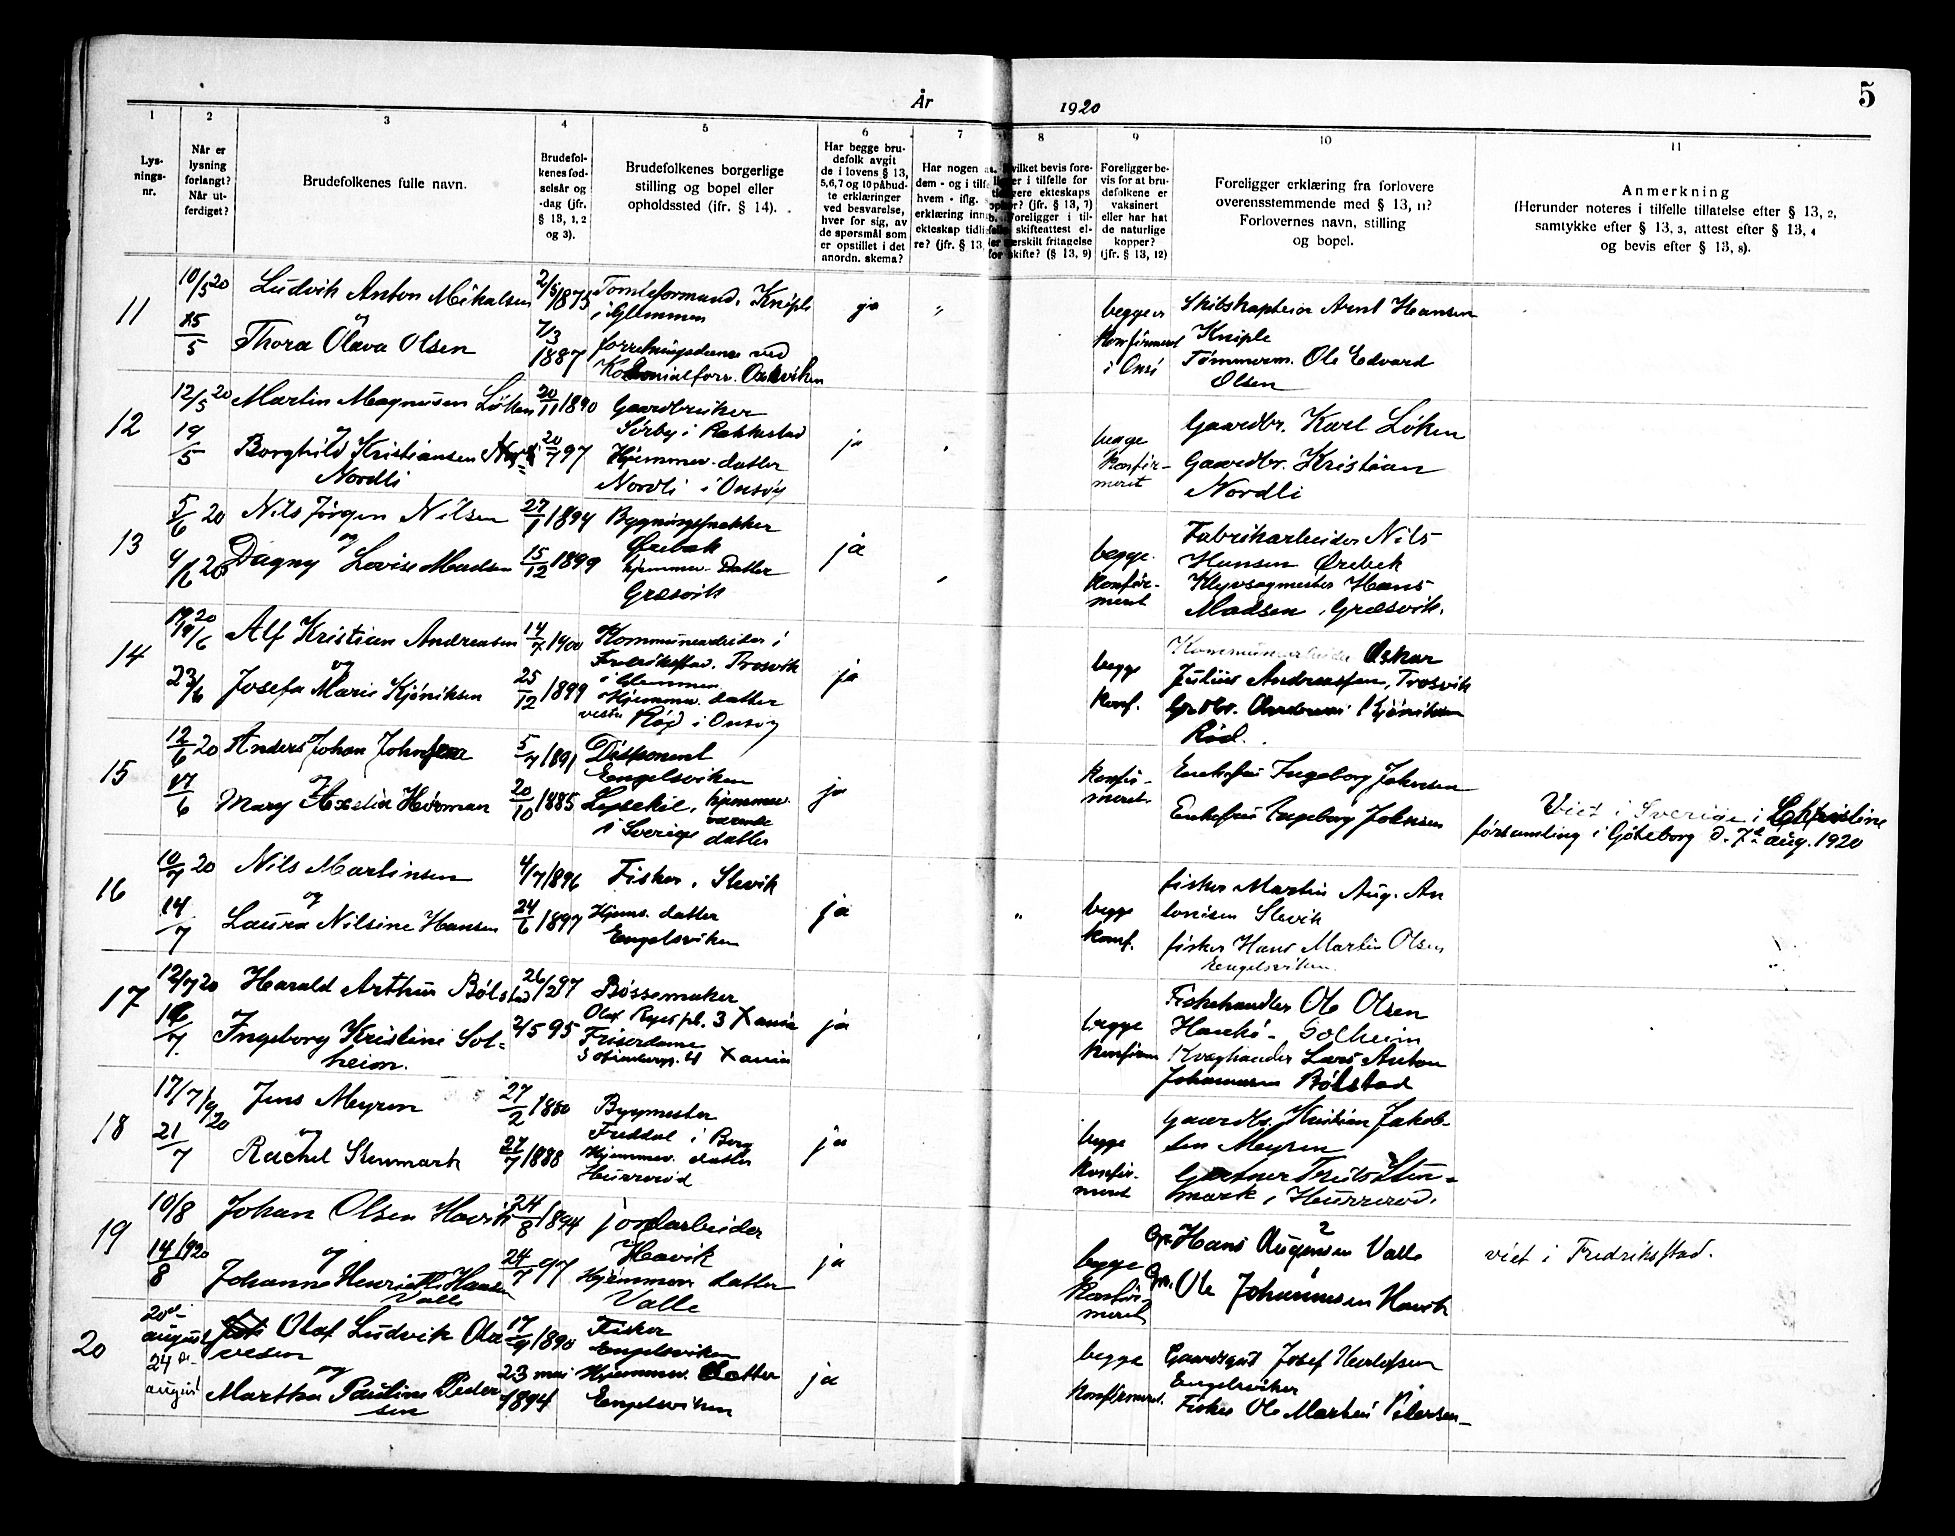 År 1920
5
1
2
3
4
5
6
7
8
9
10
11
Lys-
nings-
nr.
Når er
lysning
forlangt?
Når ut-
ferdiget?
Brudefolkenes fulle navn.
Brudefol-
kenes fød-
selsår og
-dag (jfr.
§ 13, 1, 2
og 3).
Brudefolkenes borgerlige
stilling og bopel eller
opholdssted (ifr. § 14).
Har begge bru-
defolk avgit
de i lovens § 13,
5,6,7 og 10 påbud-
te erklæringer
ved besvarelse,
hver for sig, av
de spørsmål som
er opstillet i det
anordn. skema?
Har nogen a
dem - og i tilf
hvem - iflg.
erklæring inn
ekteskap tidli
re? (jfr. § 13,
vilket bevis fore-
er i tilfelle for
ere ekteskaps
hør? (jfr. § 13, 7)
Foreligger i til-
skifteattest el-
ærskilt fritagelse
for skifte? (§ 13, 9)
Foreligger be-
vis for at bru-
defolkene er
vaksinert
eller har hat
de naturlige
kopper?
(jfr. § 13, 12)
Foreligger erklæring fra forlovere
overensstemmende med § 13, 11?
Forlovernes navn, stilling
og bopel.
Anmerkning
(Herunder noteres i tilfelle tillatelse efter § 13, 2,
samtykke efter § 13, 3, attest efter § 13, 4
og bevis efter § 13, 8).
11
10/5 20
Ludvik Anton Mikalsen
2/5 1875
Tomteformand, Kniple
i Glemmen
ja
"
begge er
konfirmert
i Onsø
Skibskaptein Arnt Hansen
Kniple
15/5
og
Thora Olava Olsen
7/3
1887
forretningsdame ved
Kolonialforr. Oreviken
Tømmerm. Ole Edvard
Olsen
12
12/5 20
Martin Magnusen Løken
20/11 1890
Gaardbruker
Sørby i Rakkestad
ja
begge
konfir-
mert
Gaardbr. Karl Løken
19/5
og
Borghild Kristiansen
Nordli
20/7 97
Hjemmev. datter
Nordli i Onsøy
Gaardbr. Kristian
Nordli
13
5/6 20
Nils Jørgen Nilsen
27/1 1894
Bygningssnekker
Ørebæk
ja
begge
konfir-
mert
Fabrikarbeider Nils
Hansen Ørebek
9/6 20
og
Dagny Lovise Madsen
15/12 1899
hjemmev. Datter
Græsvik
Klyvsagmester Hans
Madsen, Græsvik.
14
19/6 20
Alf Kristian Andreasen
14/7 1900
Kommunearbeider i
Fredrikstad. Trosvik
i Glemmen
ja
begge
konf.
Kommunearbeider Oskar
Julius Andreassen, Trosvik
23/6
og
Josefa Marie Kjöniksen
25/12 1899
Hjemmev. datter
vestre Rød i Onsøy
Grdbr. Andreas Kjöniksen
Rød.
15
12/6 20
Anders Johan Johnsen
5/7 1891
Disponent
Engelsviken
ja
konfir-
mert
Enkefru Ingeborg Johnsen
17/6
og
Mary Axelia Herman
20/10 1885
Lysekil, hjemmev.
værende
i Sverige datter
Enkefru Ingeborg Johnsen
Viet i Sverige i Christine
församling i Göteborg d. 7de aug. 1920
16
10/7 20
Nils Martinsen
4/7 1896
Fisker. Slevik
ja
"
begge
konf.
fisker Martin Aug. An
tonisen Slevik
14/7
og
Laura Nilsine Hansen
24/6 1897
Hjems. datter
Engelsviken
fisker Hans Martin Olsen
Engelsviken
17
12/7 20
Harald Arthur Bölstad
26/12 97
Bøssemaker
Olaf Ryes pl. 3 Xania
ja
begge
konfirm
Fiskehandler Ole Olsen
Hankö - Solheim
16/7
Ingeborg Kristine Sol-
heim.
2/5 95
Friserdame
Xania
Kvæghandler Lars Anton
Johannesen Bölstad
18
17/7 1920
Jens Meyren
27/2 1880
Bygmester
Freddal i Berg
ja
begge
konfir-
mert
Gaardbr. Kristian Jakob-
sen Meyren
21/7
og
Rachel Stenmark
27/7 1888
Hjemmev. datter
Hurrerød
Gartner Truls Sten-
mark, Hurrerød.
19
10/8
Johan Olsen Havik
24/8 1894
jordarbeider
Havik
ja
begge
konfir-
mert
Gr. Hans Augensen Valle
?
viet i Fredrikstad.
14/8 1920
og
Johanne Henriette Hansen
Valle
24/7 97
Hjemmev datter
Valle
Gr. Ole Johannesen Havik
20
20de
august
Olaf Ludvik Ola
vesen
17/9 1890
Fisker
Engelsviken
ja
begge
konfirmert.
Gaardsgut Josef Herlofsen
Engelsviken
24de
august
og
Martha Pauline Peder
sen
23 mai
1894
Hjemmev. Datter
Engelsviken
Fisker Ole Martin Petersen